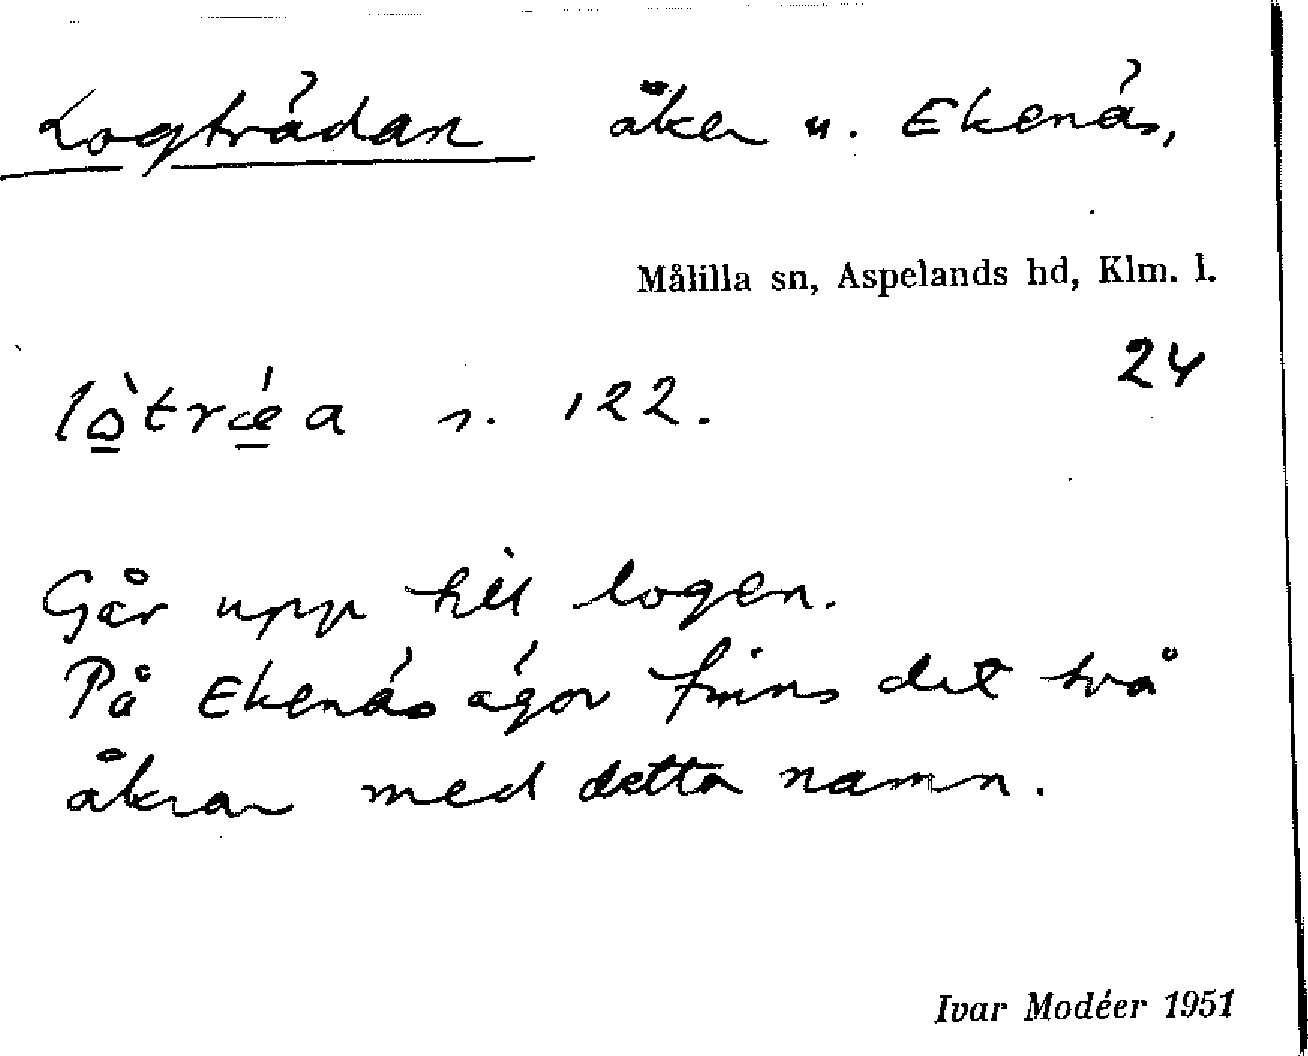 Logträdan åker u. Ekenäs,
Målilla sn, Aspelands hd, Klm. l.
24
lò̱trǽ̱a s. 122.
Går upp till logen.
På Ekenäs ägor finns det två
åkrar med detta namn.
Ivar Modéer 1951